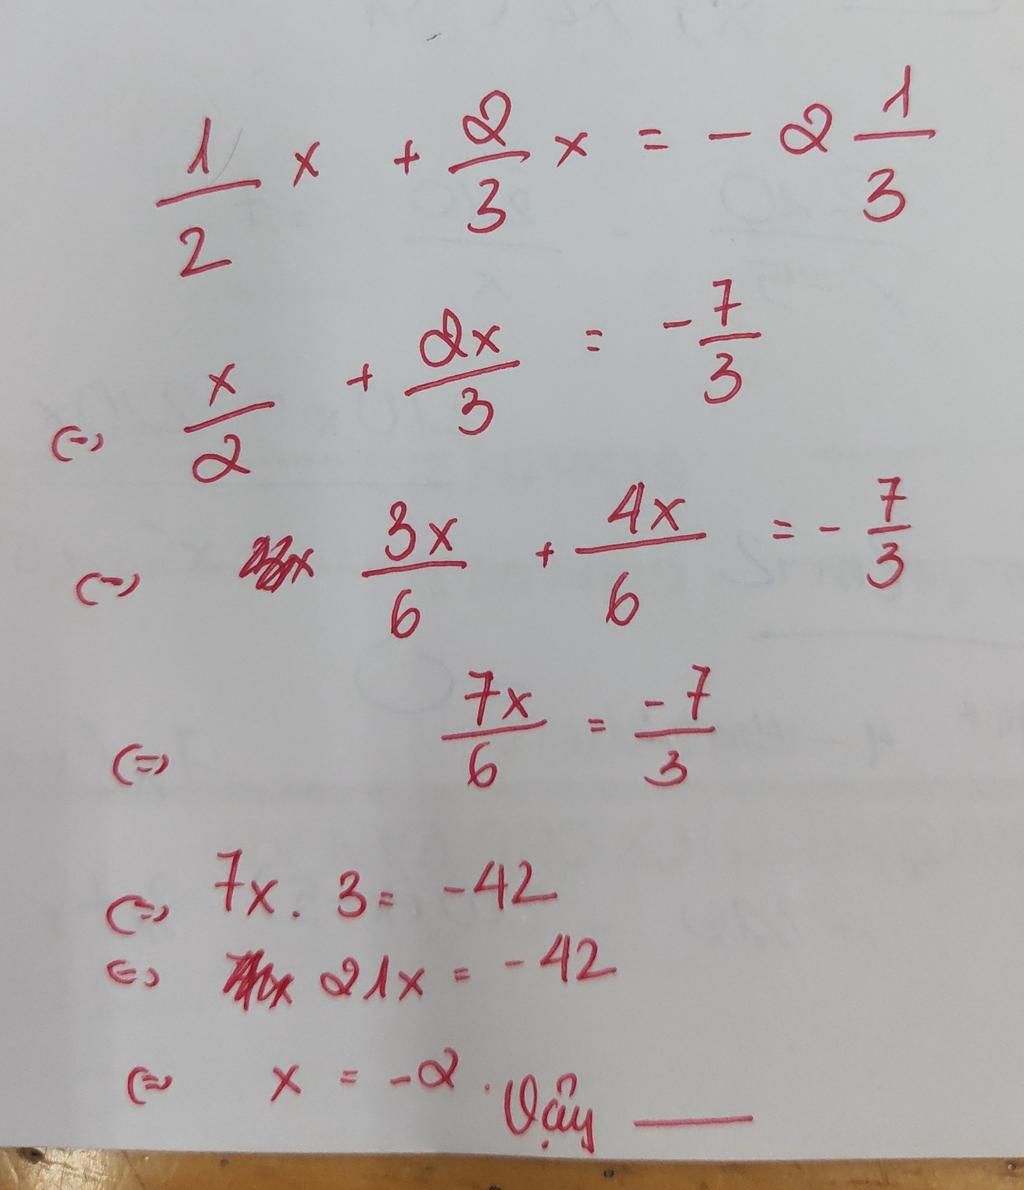 1/2 x + 2/3 x = - 2 1/3
(=) x/2 + 2x/3 = - 7/3
(=) 3x/6 + 4x/6 = - 7/3
(=) 7x/6 = -7/3
(=) 7x . 3 = -42
(=) 21x = -42
(=) x = -2 . Vậy ___